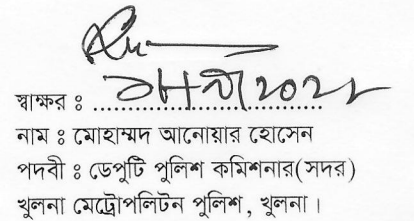 স্বাক্ষর :
নাম : মোহাম্মদ আনোয়ার হোসেন
পদবী : ডেপুটি পুলিশ কমিশনার(সদর)
খুলনা মেট্রোপলিটন পুলিশ, খুলনা।